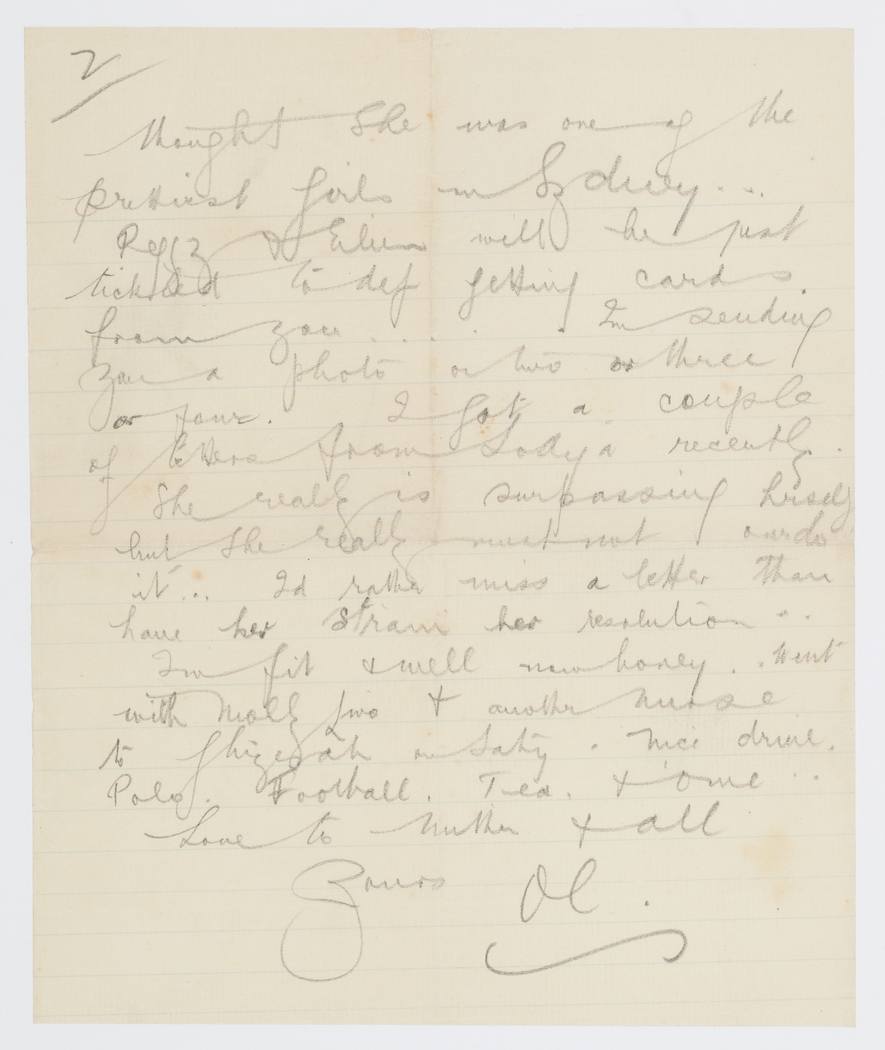 2
thought she was one of the
prettiest girls in Sydney...
Peggy & Eileen will be just
tickled to def getting cards
from you ..... Im sending
you a photo or two or three
or four. I got a couple
of letters from Lodya recently.
She really is surpassing herself
but she really must not overdo
it... Id rather miss a letter than
have her strain her resolution..
Im fit & well now honey.. Went
with Molly two & another nurse
to Ghizerah on Saty. Nice drive.
Polo. Football. Tea. & ome..
Love to Mother & all
Yours Ol.